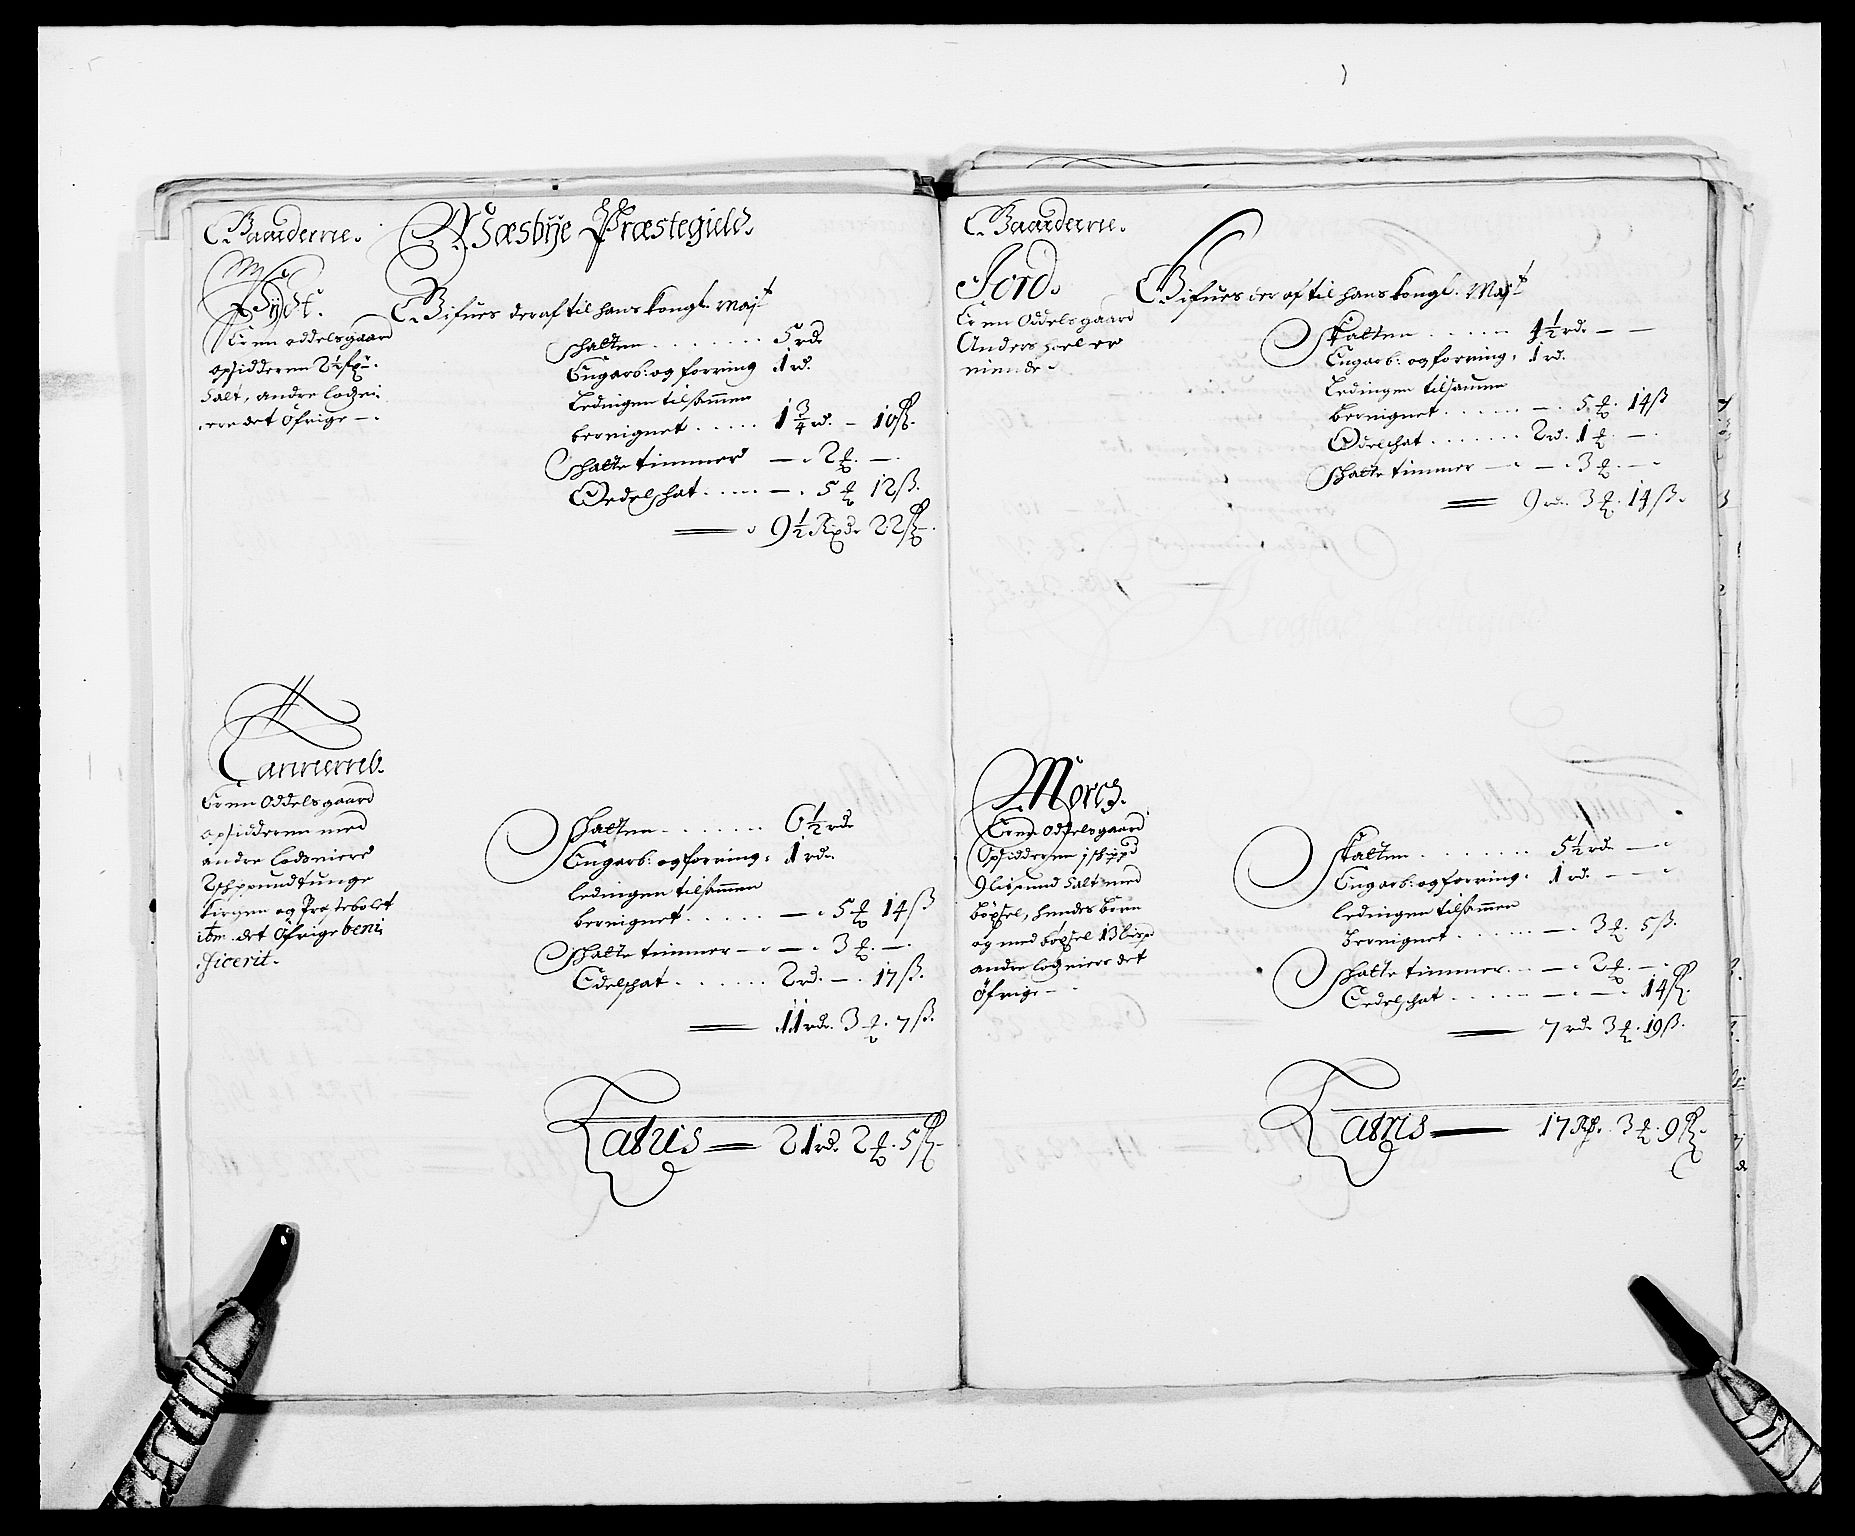 Gaarderne.
Næsbÿe Præstegield.
Er en oddelsgaard
opsidderen 2½ fxr:
Salt, andre lodzei:
ere det öfrige —.
Gifues deraf til hans kongl. Maj.t
Skatten . . . . . . . . 5 rd.
Engarb: og forring 1 rd.
Ledingen tilsammen
beregnet . . . . . 1¾ rd. — 10 ß.
Skatte timmer — . 2 ℔. —.
Oedelskat . . . . . — . 5 ℔ 12 ß.
9½ Rixd. 22 ß.
Er en Oddelsgaard
opsidderen med
andre lodseiere
2 skppundtunge
Kirgen og Prestebolet
itm det öfrige beni:
ficerit.
Skatten . . . . . . . 6½ rd.
Engarb: og forring: 1 rd.
Ledingen tilsammen
beregnet . . . . . — . 5 ℔ 14 ß
Skatte timmer — . — . 3 ℔. —.
Edelskat . . . . . . 2 rd. —. 17 ß.
11 rd. 3 ℔. 7 ß.
Latus — 21 rd. 2 ℔. 5 ß.
Gaarderne.
Jord.
Er en Oddelsgaard
Anders hoel er
eiende.
Gifues der af til hans kongl. Maj.t
Skatten . . . . . . 4½ rd. — —
Engarb: og forring: 1 rd.
Ledingen tilsamen
beregnet . . . . . . —. 5 ℔. 14 ß
Ødelskat . . . . . . . 2 rd. 1 ℔. —.
Skatte timmer — . — . 3 ℔. —.
9 rd. 3 ℔. 14 ß.
Morch.
Er en Oddelsgaard
Opsidderen 1 skippd
9 lispund Salt med
böxsel, hendes börn
og med böxsel 13 lispd
andre lodzeiere det
öfrige — .
Skatten . . . . . . . 5½ rd. — .
Engarb: og forring. 1 rd. — .
Ledingen tilsammen
beregnet . . . . . . —. 3 ℔. 5 ß.
Skatte timmer . . — . 2 ℔. —.
Oedelskat . . . . . — . — . 14 ß.
7 rd 3 ℔. 19 ß.
Latus — 17 Rd. 3 ℔. 9 ß.